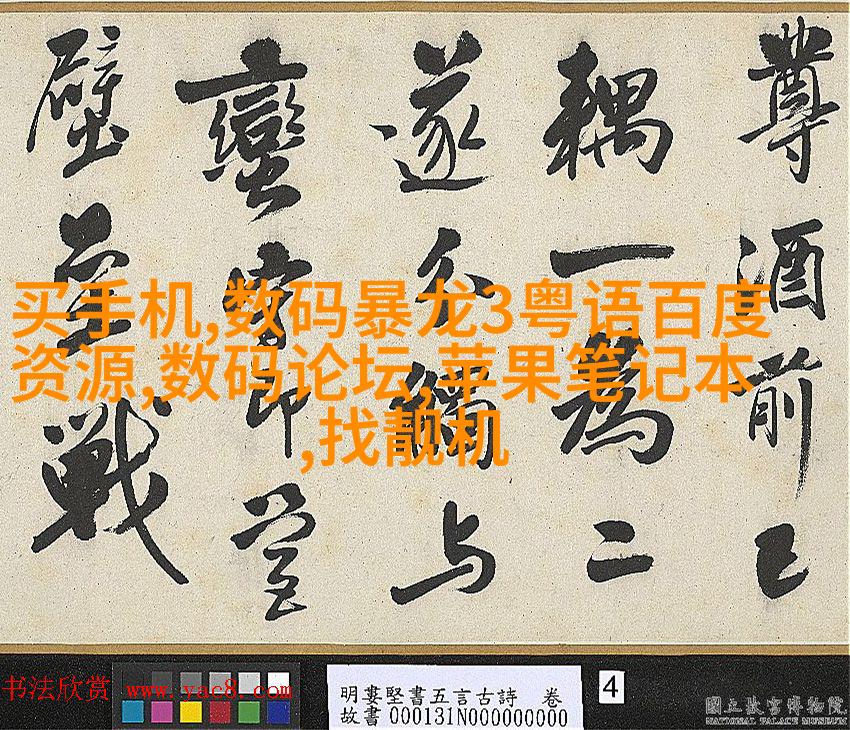 尊酒前已
耦一為二
遂分觸与
蠻即營
壁壘戰
买手机,数码暴龙3粤语百度
资源,数码论坛,苹果笔记本
,找靓机
书法欣赏 www.yac8.com
明婁堅書五言古詩 卷
故書000131N000000000
4
國立故宮博物院
NATIONAL PALACE MUSEUM